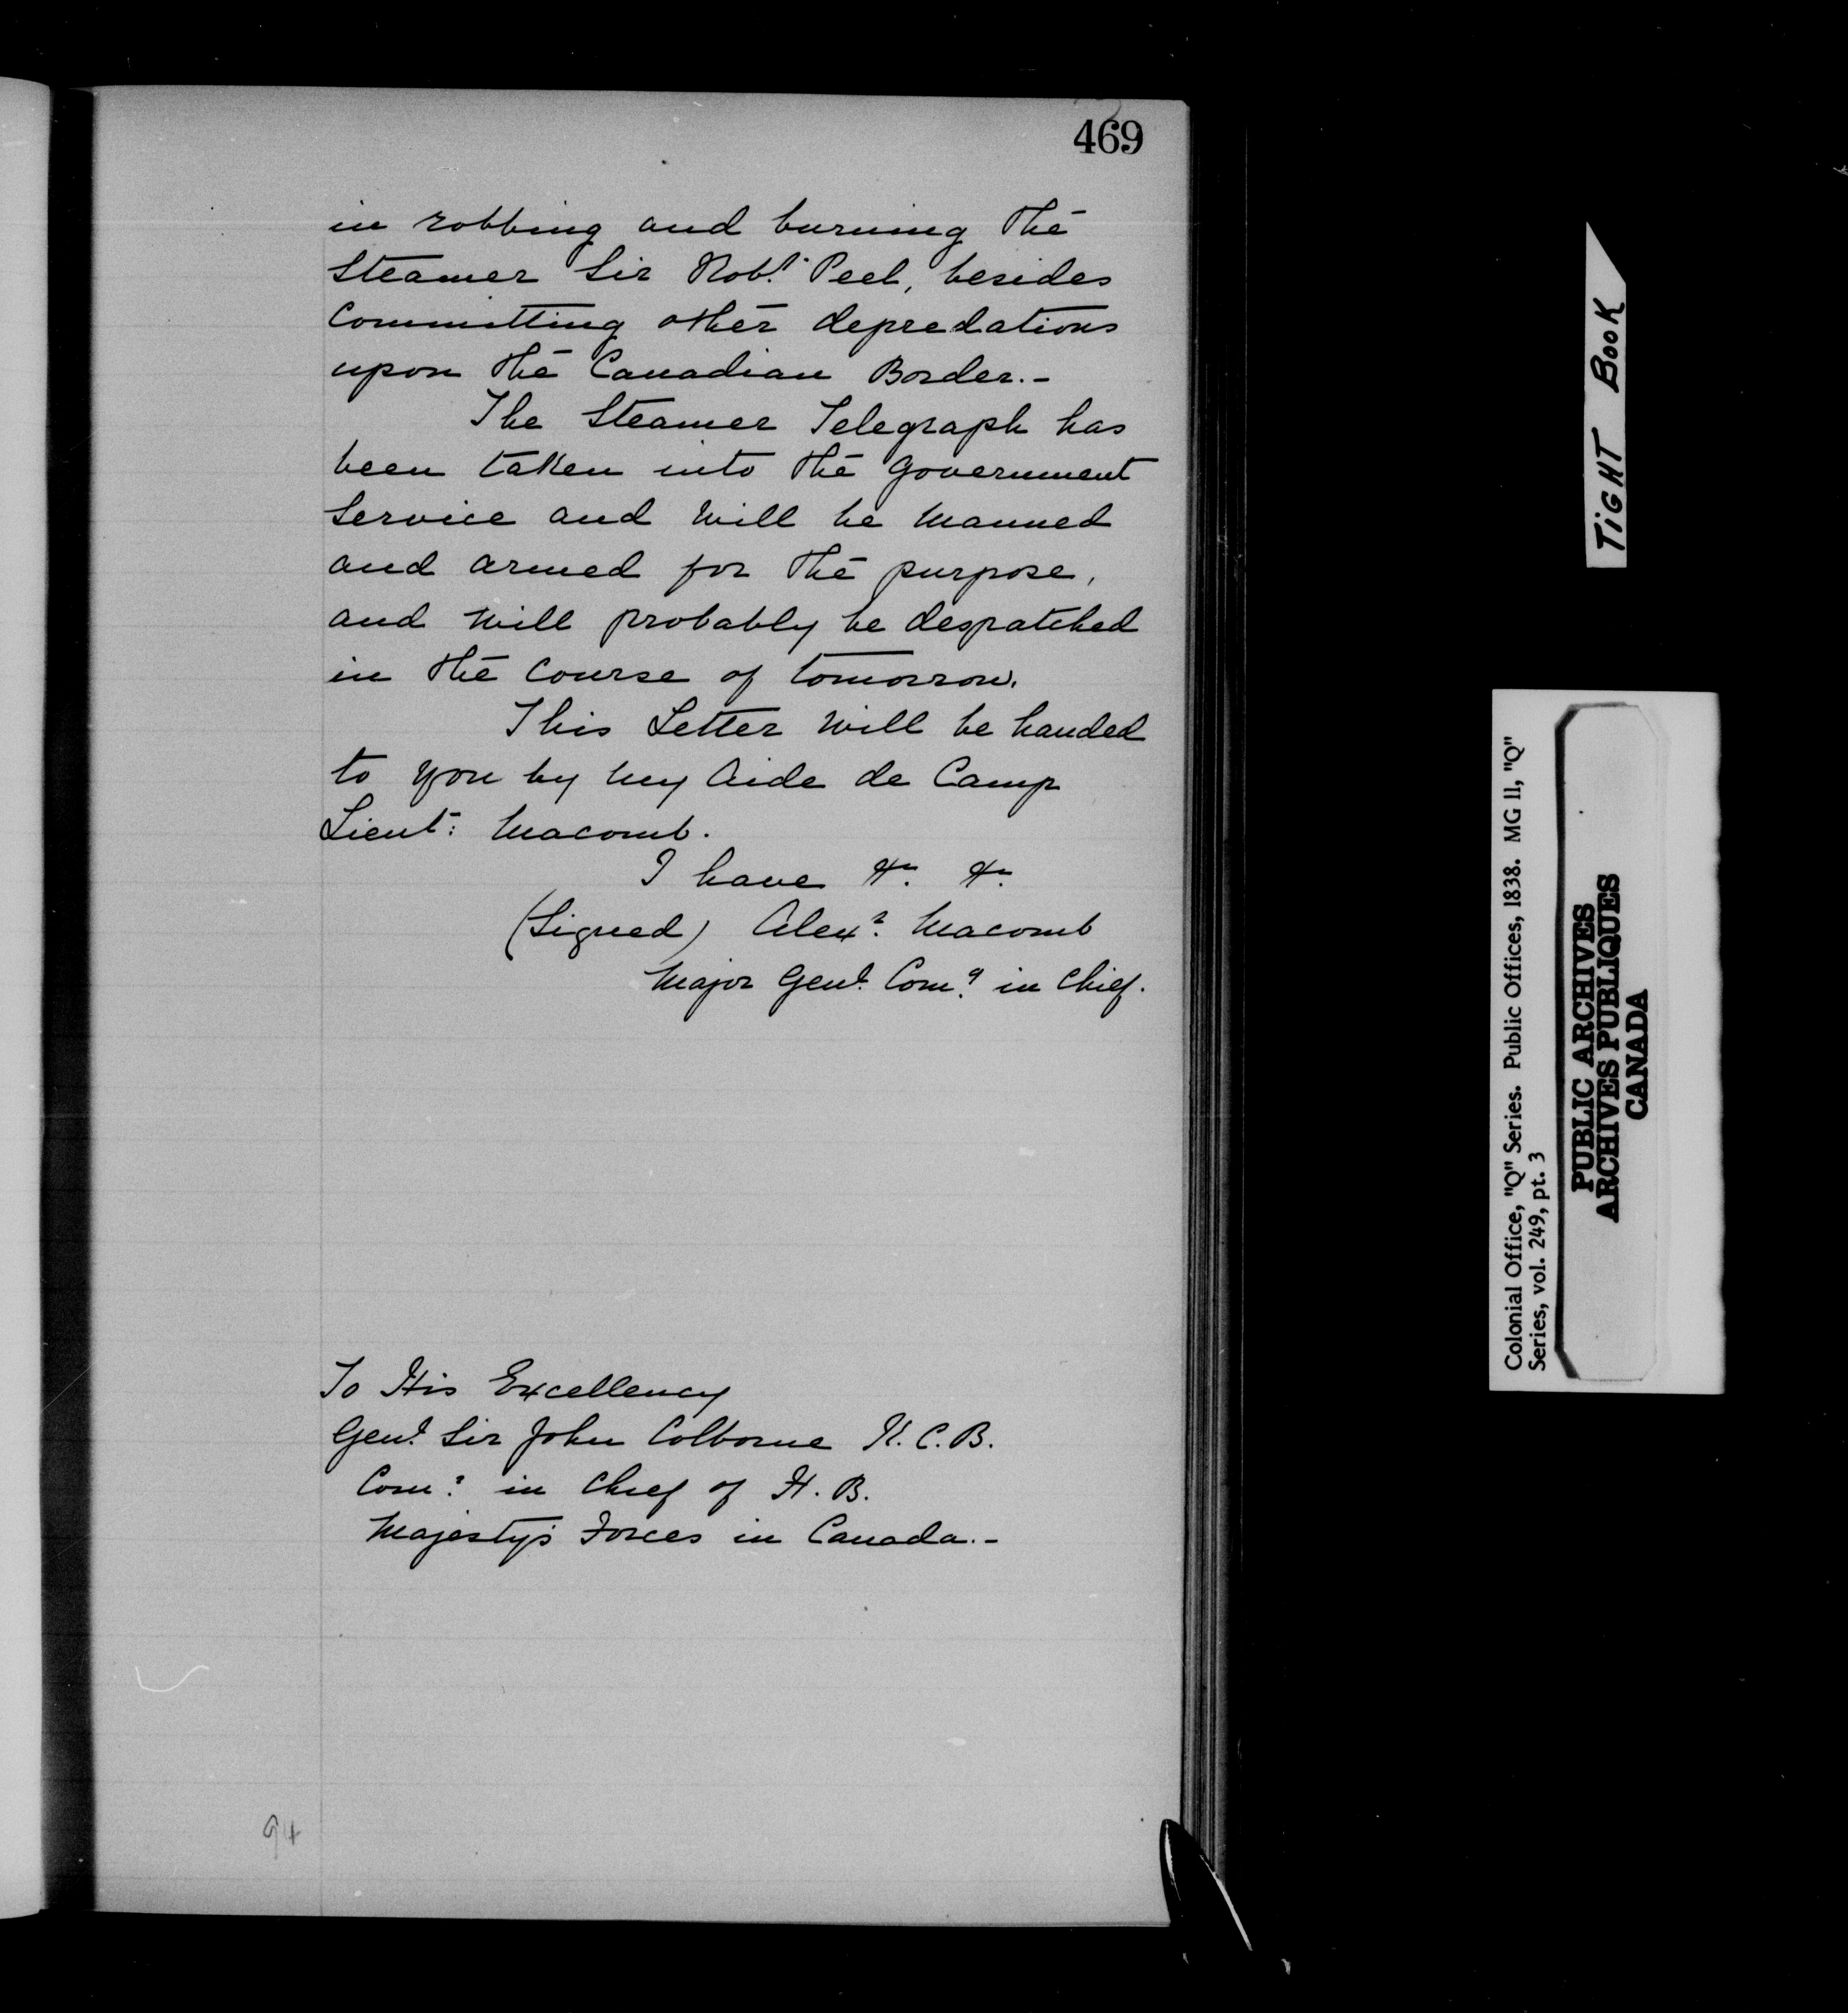 469
in robbing and burning the
Steamer Sir Rob.t Peel, besides
Committing other depredations
upon the Canadian Border.-
The Steamer Telegraph has
been taken into the Government
Service and will be manned
and armed for the purpose,
and will probably be despatched
in the Course of tomorrow.
This Letter will be handed
to you by my Aide de Camp
Lieut: Macomb.
I have &c. &c.
(Signed) Alex.r Macomb
Major Gen.l Com.g in Chief.
To His Excellency
Gen.l Sir John Colborne K.C.B.
Com.r in Chief of H.B.
Majesty's Forces in Canada.-
94
TIGHT BOOK
Colonial Office, "Q" Series. Public Offices, 1838. MG 11, "Q"
Series, vol. 249, pt. 3
PUBLIC ARCHIVES
ARCHIVES PUBLIQUES
CANADA